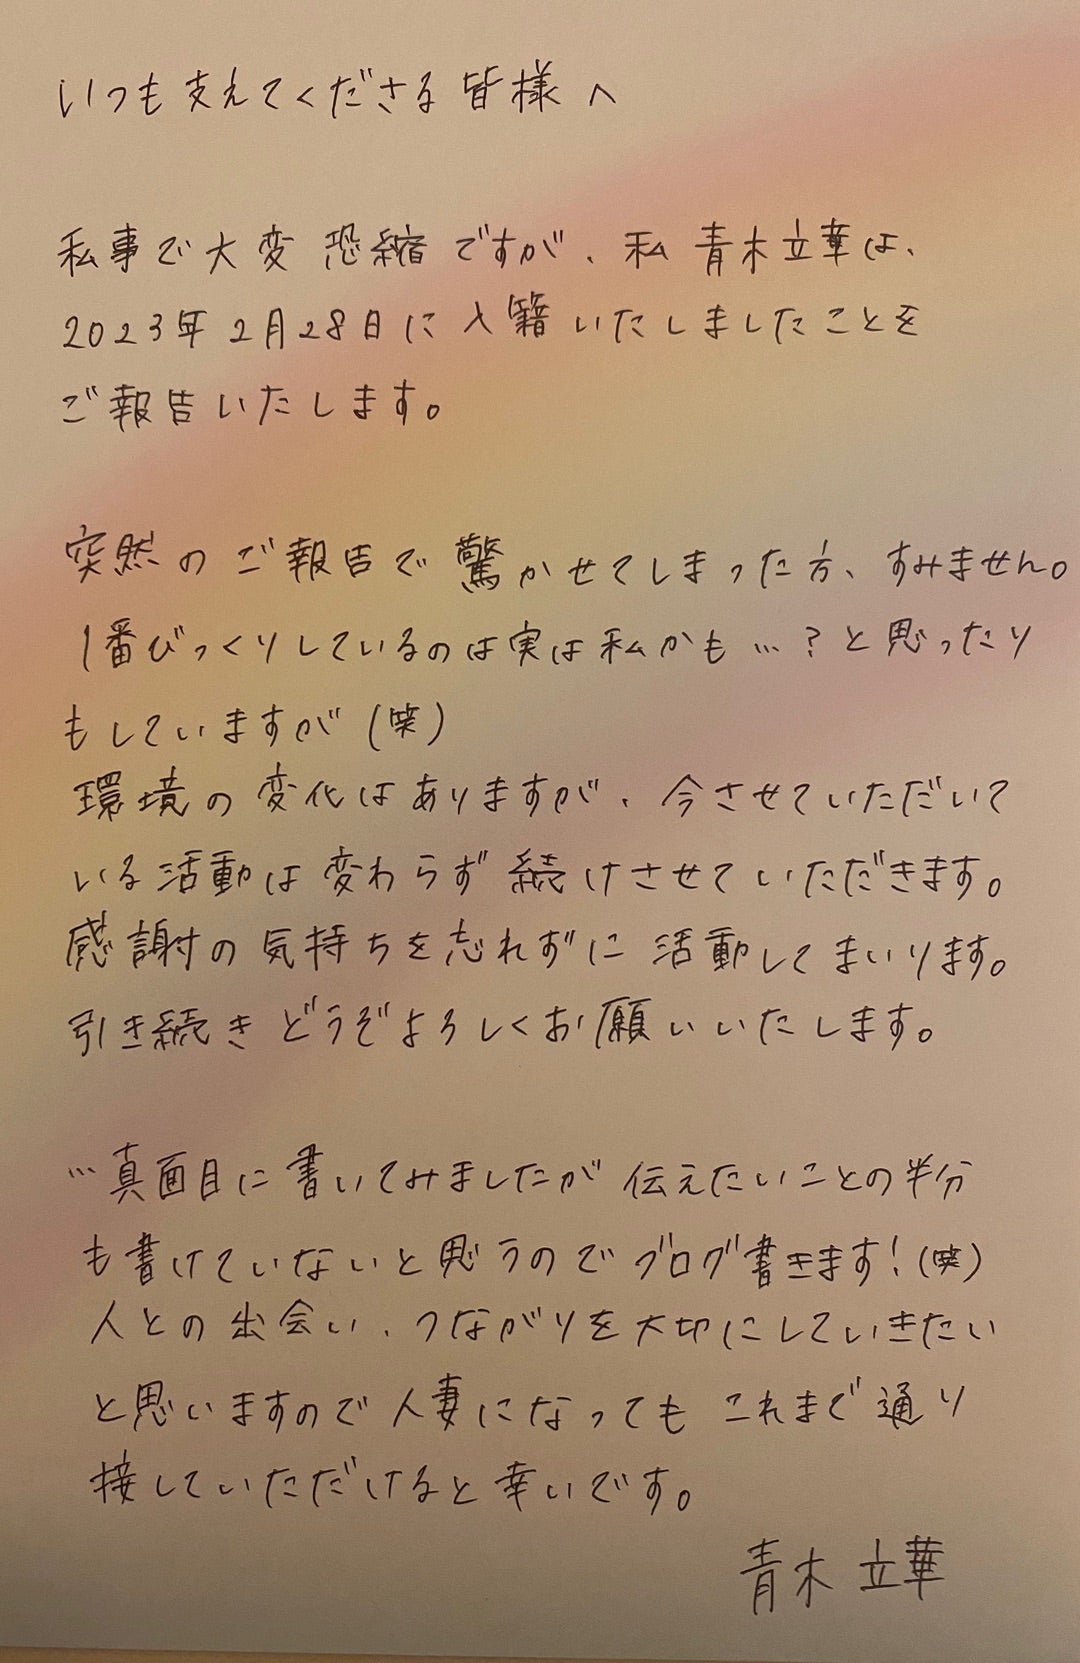 いつも支えてくださる皆様へ
私事で大変恐縮ですが、私 青木立華は、
2023年2月28日に入籍いたしましたことを
ご報告いたします。
突然のご報告で驚かせてしまった方、すみません。
1番びっくりしているのは実は私かも…？と思ったり
もしていますが(笑)
環境の変化はありますが、今させていただいて
いる活動は変わらず続けさせていただきます。
感謝の気持ちを忘れずに活動してまいります。
引き続きどうぞよろしくお願いいたします。
…真面目に書いてみましたが伝えたいことの半分
も書けていないと思うのでブログ書きます！(笑)
人との出会い、つながりを大切にしていきたい
と思いますので人妻になってもこれまで通り
接していただけると幸いです。
青木 立華